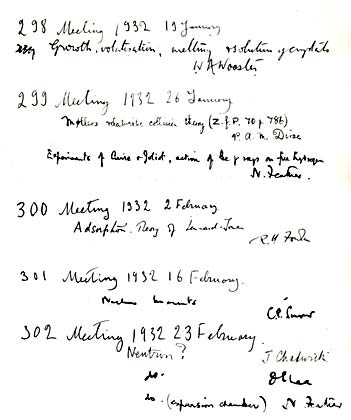 298 Meeting 1932 19 January
Growth, volatisation, melting & solution of crystals
W A Wooster
299 Meeting 1932 26 January
Møllers relativistic collision theory (Z.f.P. 70 p 786)
P. A. M. Dirac
Experiments of Curie & Joliot, action of the γ rays on free hydrogen
N. Feather.
300 Meeting 1932 2 February
Adsorption. Theory of Lennard-Jones
R. H. Fowler
301 Meeting 1932 16 February.
Nuclear Moments
C. P. Snow
302 Meeting 1932 23 February.
Neutron? J Chadwick
do. D E Lea
do. (expansion chamber) N Feather